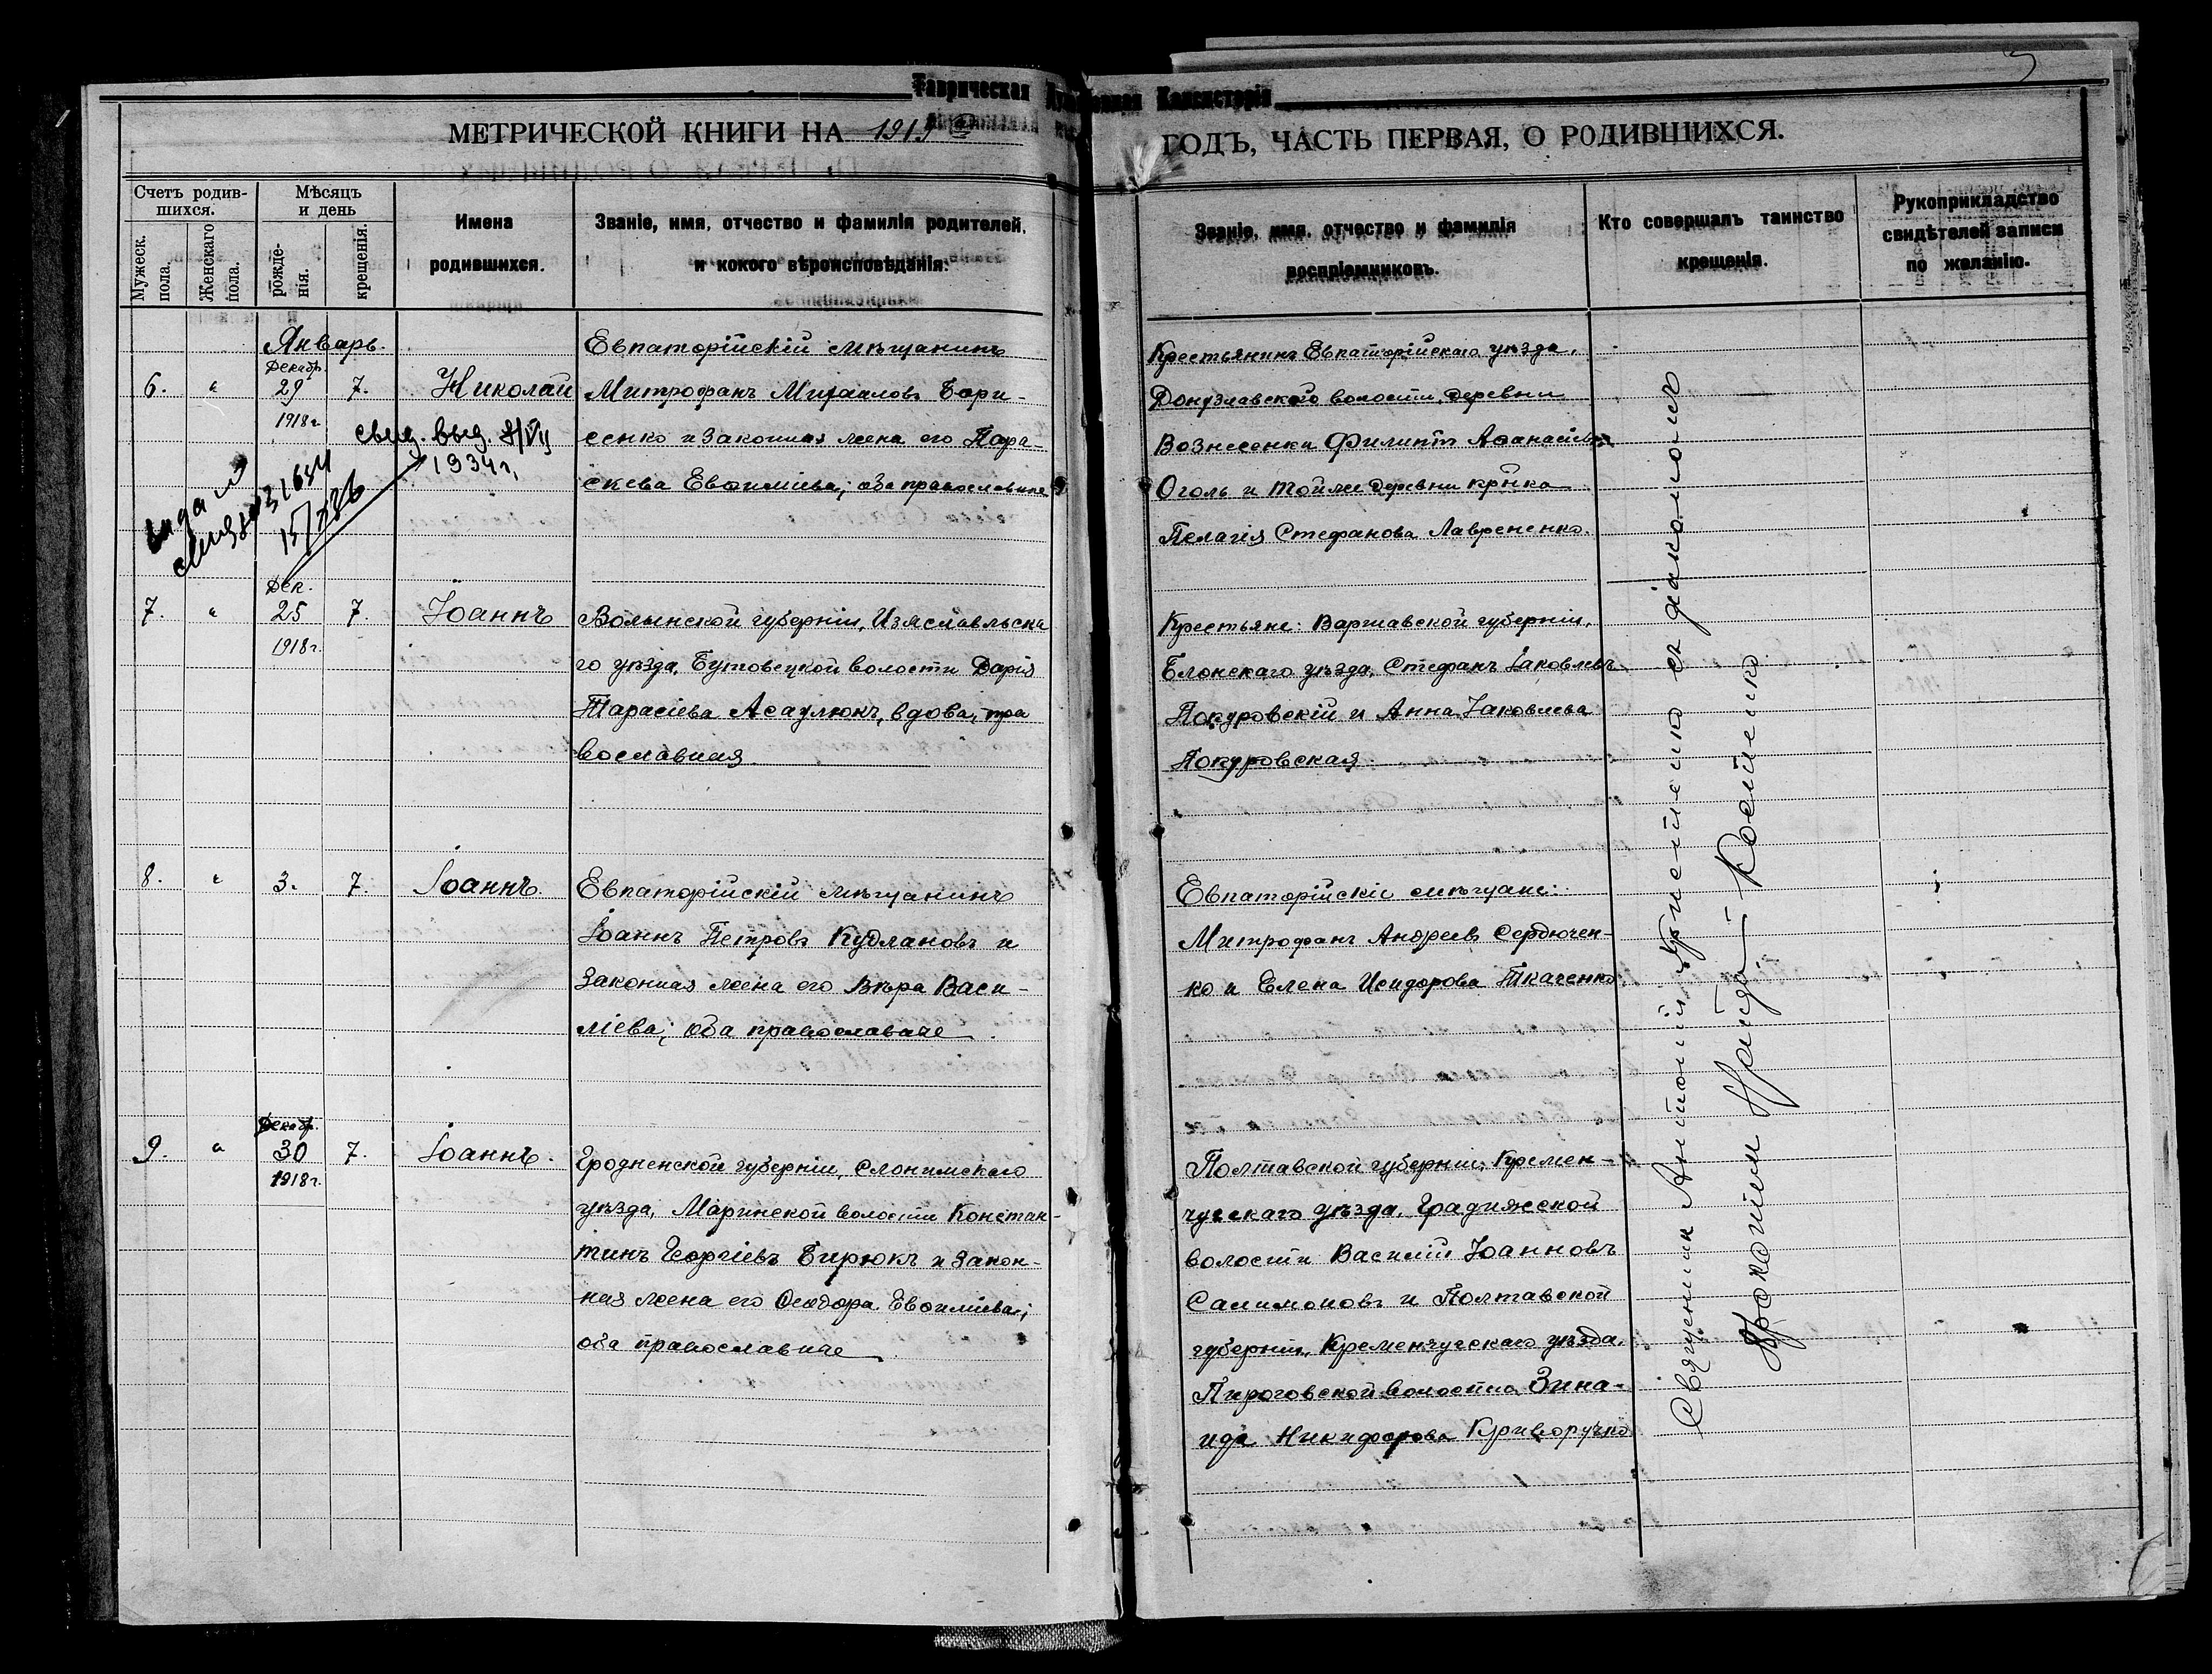 Таврическая Духовная Консисторія
МЕТРИЧЕСКОЙ КНИГИ НА 1919
ГОДЪ, ЧАСТЬ ПЕРВАЯ, О РОДИВШИХСЯ.
Счетъ родив-
шихся.
Мужеск.
пола.
Женскаго
пола.
Мѣсяцъ
и день
рожде-
нія.
крещенія.
Имена
родившихся.
Званіе, имя, отчество и фамилія родителей,
и кокого вѣроисповѣданія.
Званіе, имя, отчество и фамилія
воспріемниковъ.
Кто совершалъ таинство
крещенія.
Рукоприкладство
свидѣтелей записи
по желанію.
Январь.
6. " Декабр. 29 1918 г. 7. Николай
свид. выд. 8/VII
1934 г.
Евпаторійскій мѣщанинъ
Митрофанъ Михаиловъ Бори-
сенко и законная жена его Пара-
скева Евѳиміева; оба православные
Крестьянинъ Евпаторійскаго уѣзда,
Донузлавской волости, деревни
Вознесенки Филиппъ Аѳанасіевъ
Оголь и той же деревни кр-нка
Пелагія Стефанова Лаврененко.
7. " Дек. 25 1918 г. 7. Іоаннъ
Волынской губерніи, Изяславльска
го уѣзда, Бутовецкой волости Дарія
Тарасіева Асаулюкъ, вдова, пра
вославная
Крестьяне: Варшавской губерніи,
Блонскаго уѣзда, Стефанъ Іаковлевъ
Покуровскій и Анна Іаковлева
Покуровская
8. " 3. 7. Іоаннъ.
Евпаторійскій мѣщанинъ
Іоаннъ Петровъ Кудлановъ и
законная жена его Вѣра Васи-
ліева; оба православные
Евпаторійскіе мѣщане:
Митрофанъ Андреевъ Сердючен-
ко и Елена Исидорова Ткаченко
9. " Декабр. 30 1918 г. 7. Іоаннъ.
Гродненской губерніи, Слонимскаго
уѣзда, Маринской волости Констан-
тинъ Георгіевъ Бирюкъ и закон-
ная жена его Ѳеодора Евѳиміева;
оба православные
Полтавской губерніи, Кремен-
чугскаго уѣзда, Градижской
волости Василій Іоанновъ
Салимоновъ и Полтавской
губерніи, Кременчугскаго уѣзда,
Пироговской волости Зина-
ида Никифорова Криворучко
Священник Антоній с діакономъ
Прокопием